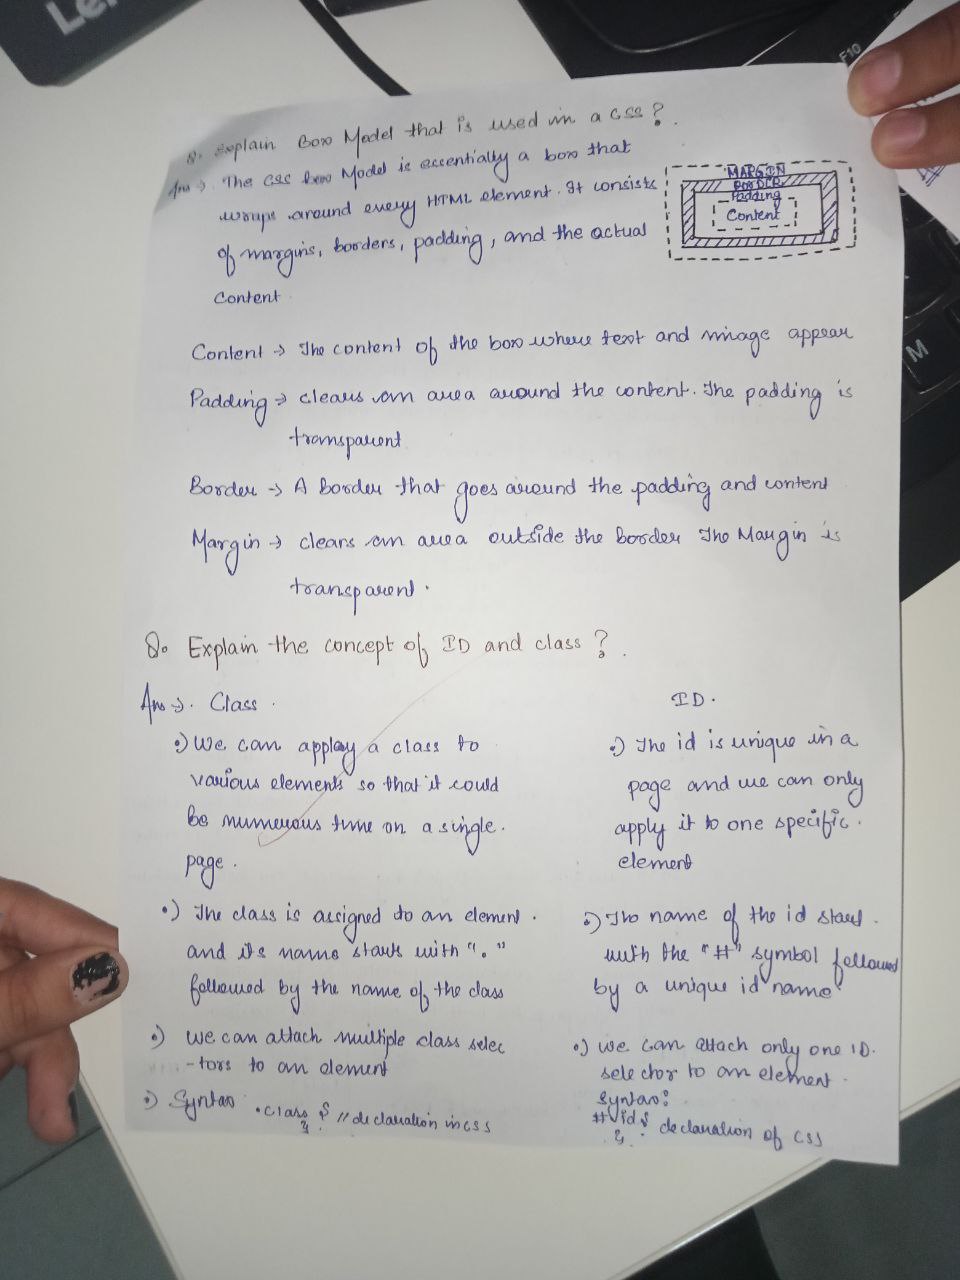 Le
F10
M
Q. Explain Box Model that is used in a css?
Ans → The css box Model is essentially a box that
wraps around every HTML element. It consists
of margins, borders, padding, and the actual
Content
MARGIN
BORDER
Padding
Content
Content → The content of the box where text and image appear
Padding → clears an area around the content. The padding is
transparent
Border → A border that goes around the padding and content
Margin → clears an area outside the border The Margin is
transparent.
Q. Explain the concept of ID and class?
Ans → Class
•) We can apply a class to
various elements so that it could
be numerous time on a single.
page.
•) The class is assigned to an element.
and its name starts with "."
followed by the name of the class
•) we can attach multiple class selec
-tors to an element
•) Syntax .class { // declaration in css
}
ID.
•) The id is unique in a
page and we can only
apply it to one specific.
element
•) The name of the id start.
with the "#" symbol followed
by a unique id name
•) we can attach only one ID.
selector to an element.
Syntax:
# id { declaration of css
}